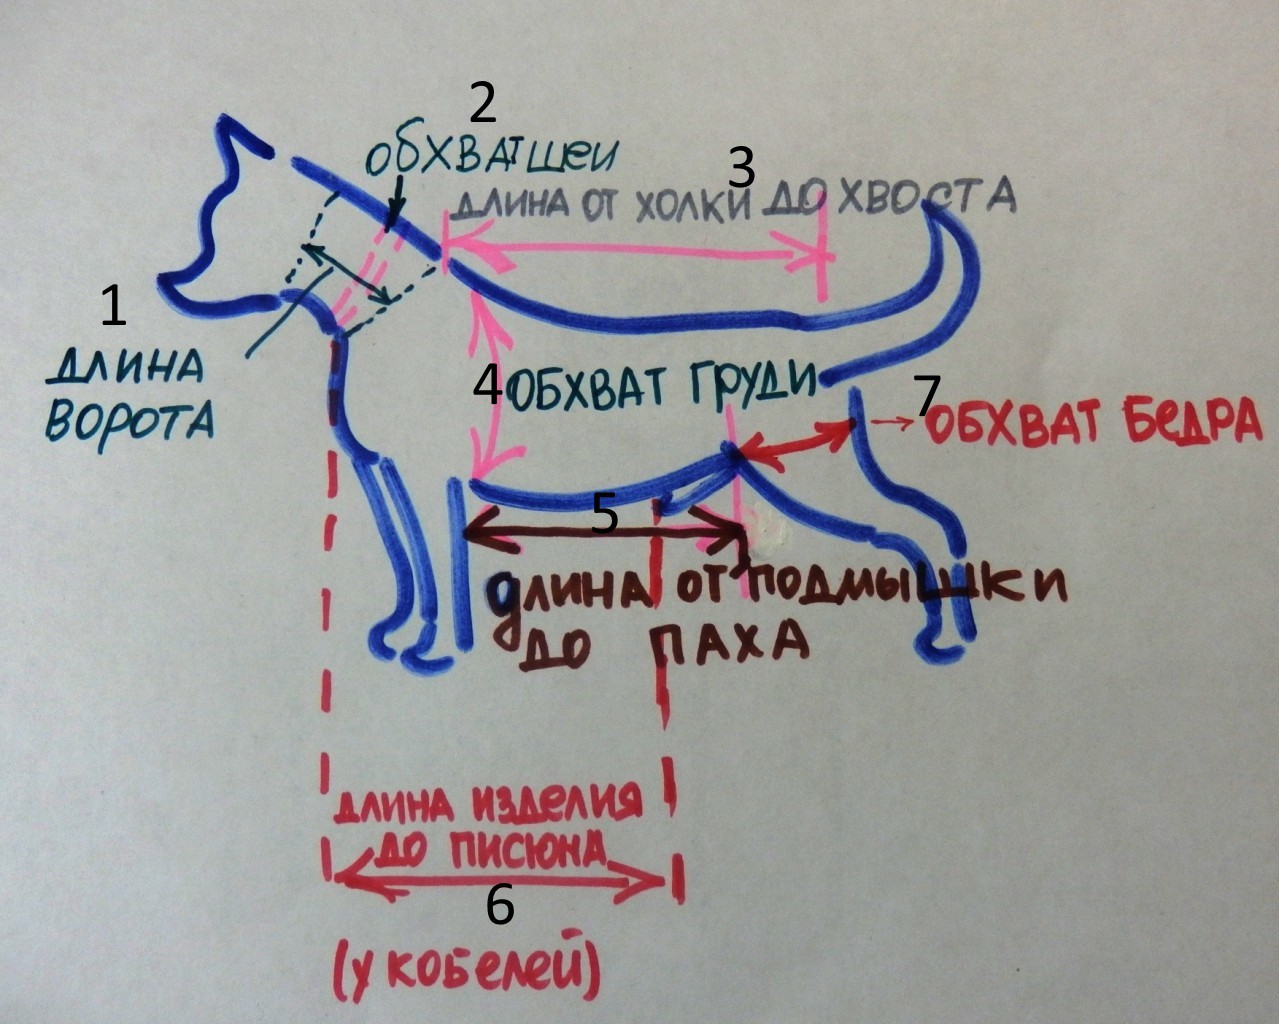 2
ОБХВАТ ШЕИ
3
ДЛИНА ОТ ХОЛКИ ДО ХВОСТА
1
ДЛИНА
ВОРОТА
4 ОБХВАТ ГРУДИ
7
ОБХВАТ БЕДРА
5
ДЛИНА ОТ ПОДМЫШКИ
ДО ПАХА
ДЛИНА ИЗДЕЛИЯ
ДО ПИСЮНА
6
(У КОБЕЛЕЙ)